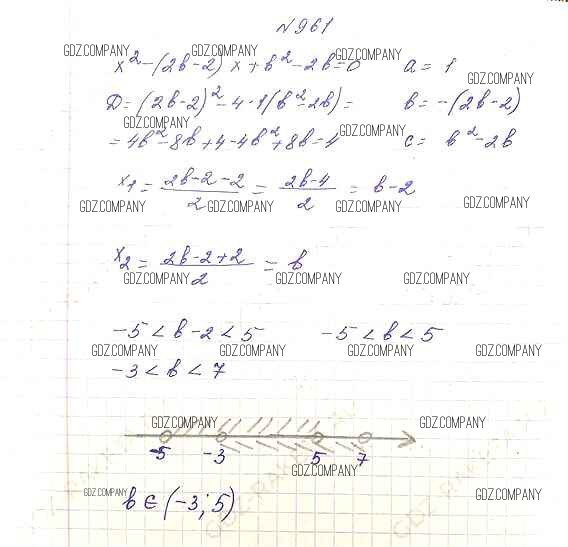 №961
x² - (2b-2)x + b² - 2b = 0 a = 1
D = (2b-2)² - 4·1(b²-2b) = b = -(2b-2)
= 4b² - 8b + 4 - 4b² + 8b = 4 c = b² - 2b
x₁ = (2b-2-2)/2 = (2b-4)/2 = b-2
x₂ = (2b-2+2)/2 = b
-5 < b-2 < 5 -5 < b < 5
-3 < b < 7
-5 -3 5 7
b ∈ (-3; 5)
GDZ.COMPANY GDZ.COMPANY GDZ.COMPANY GDZ.COMPANY
GDZ.COMPANY GDZ.COMPANY
GDZ.COMPANY GDZ.COMPANY GDZ.COMPANY GDZ.COMPANY
GDZ.COMPANY GDZ.COMPANY GDZ.COMPANY
GDZ.COMPANY GDZ.COMPANY GDZ.COMPANY GDZ.COMPANY
GDZ.COMPANY GDZ.COMPANY
GDZ.COMPANY
GDZ.COMPANY GDZ.COMPANY